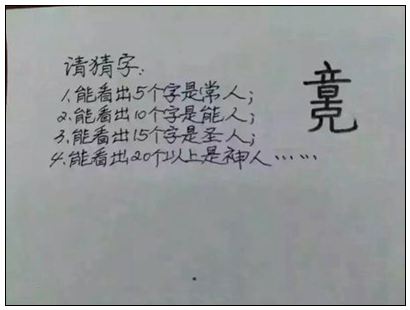 请猜字:
1.能看出5个字是常人;
2.能看出10个字是能人;
3.能看出15个字是圣人;
4.能看出20个以上是神人……